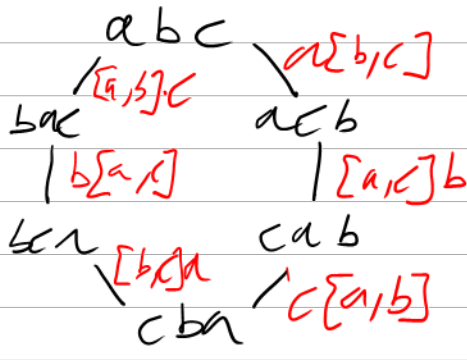 abc
[a,b].c a[b,c]
bac acb
b[a,c] [a,c]b
bca cab
[b,c]a c[a,b]
cba